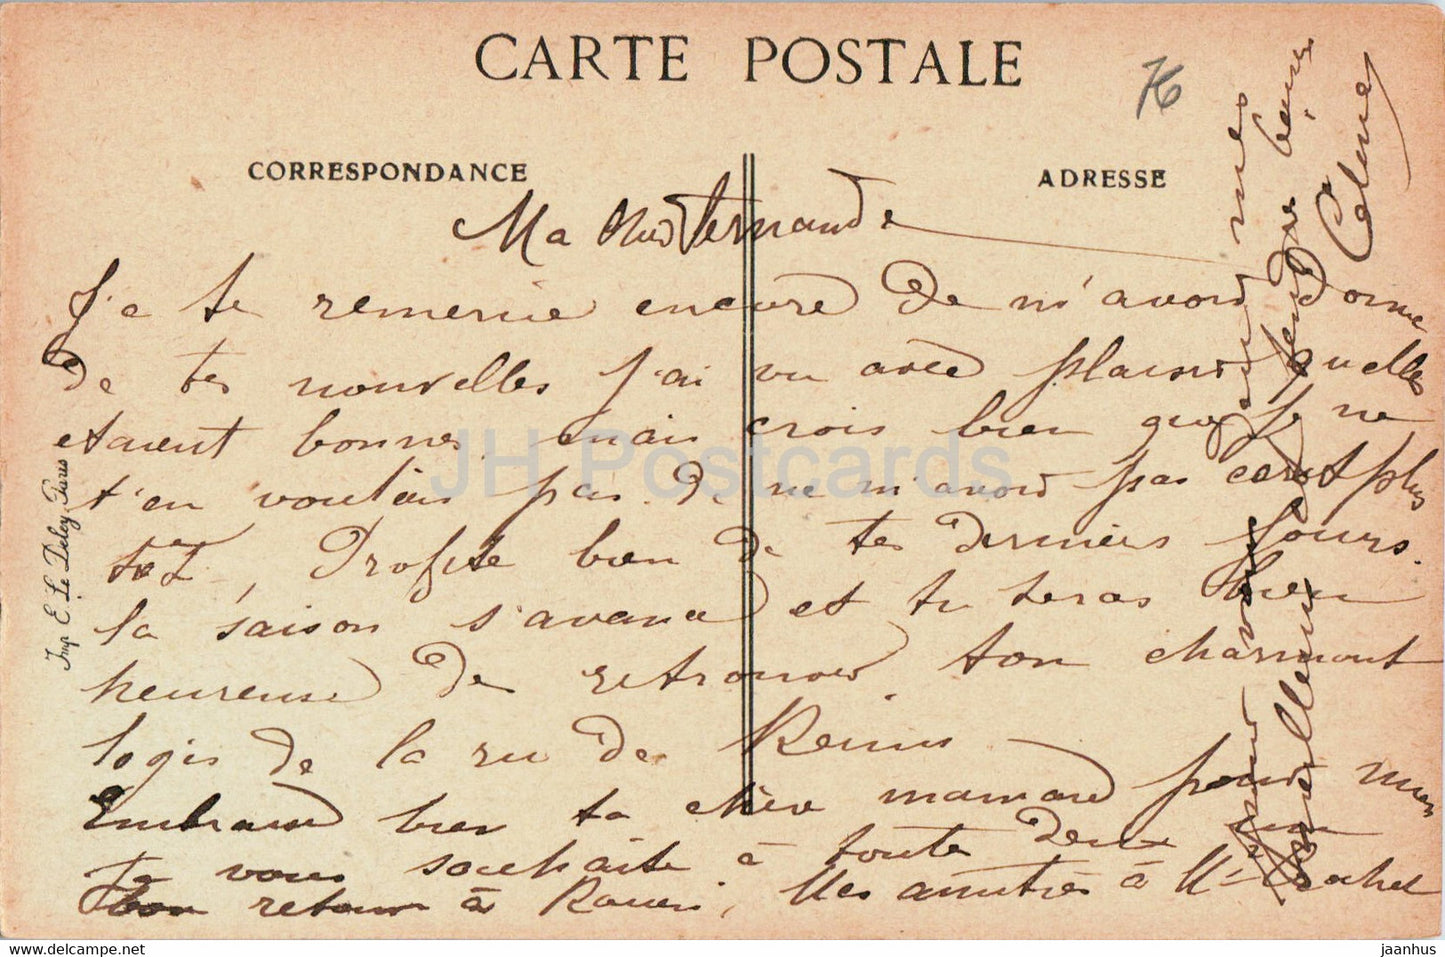 CARTE POSTALE
76
CORRESPONDANCE
ADRESSE
Ma Fernande
Je te remercie encore de m'avoir donné
de tes nouvelles j'ai vu avec plaisir quelles
etaient bonnes, mais crois bien que je ne
t'en voulais pas de ne m'avoir pas ecrit plus
tot, Profite bien de tes derniers jours.
la saison s'avance et tu seras bien
heureuse de retrouver ton charmant
logis de la ru de
Embrasse bien ta chère maman pour moi
je vous souhaite à toute deux un
bon retour à Rouen, Mes amitiés à
meilleurs
Celine
Imp. E. Le Deley, Paris
JH Postcards
www.delcampe.net
jaanhus